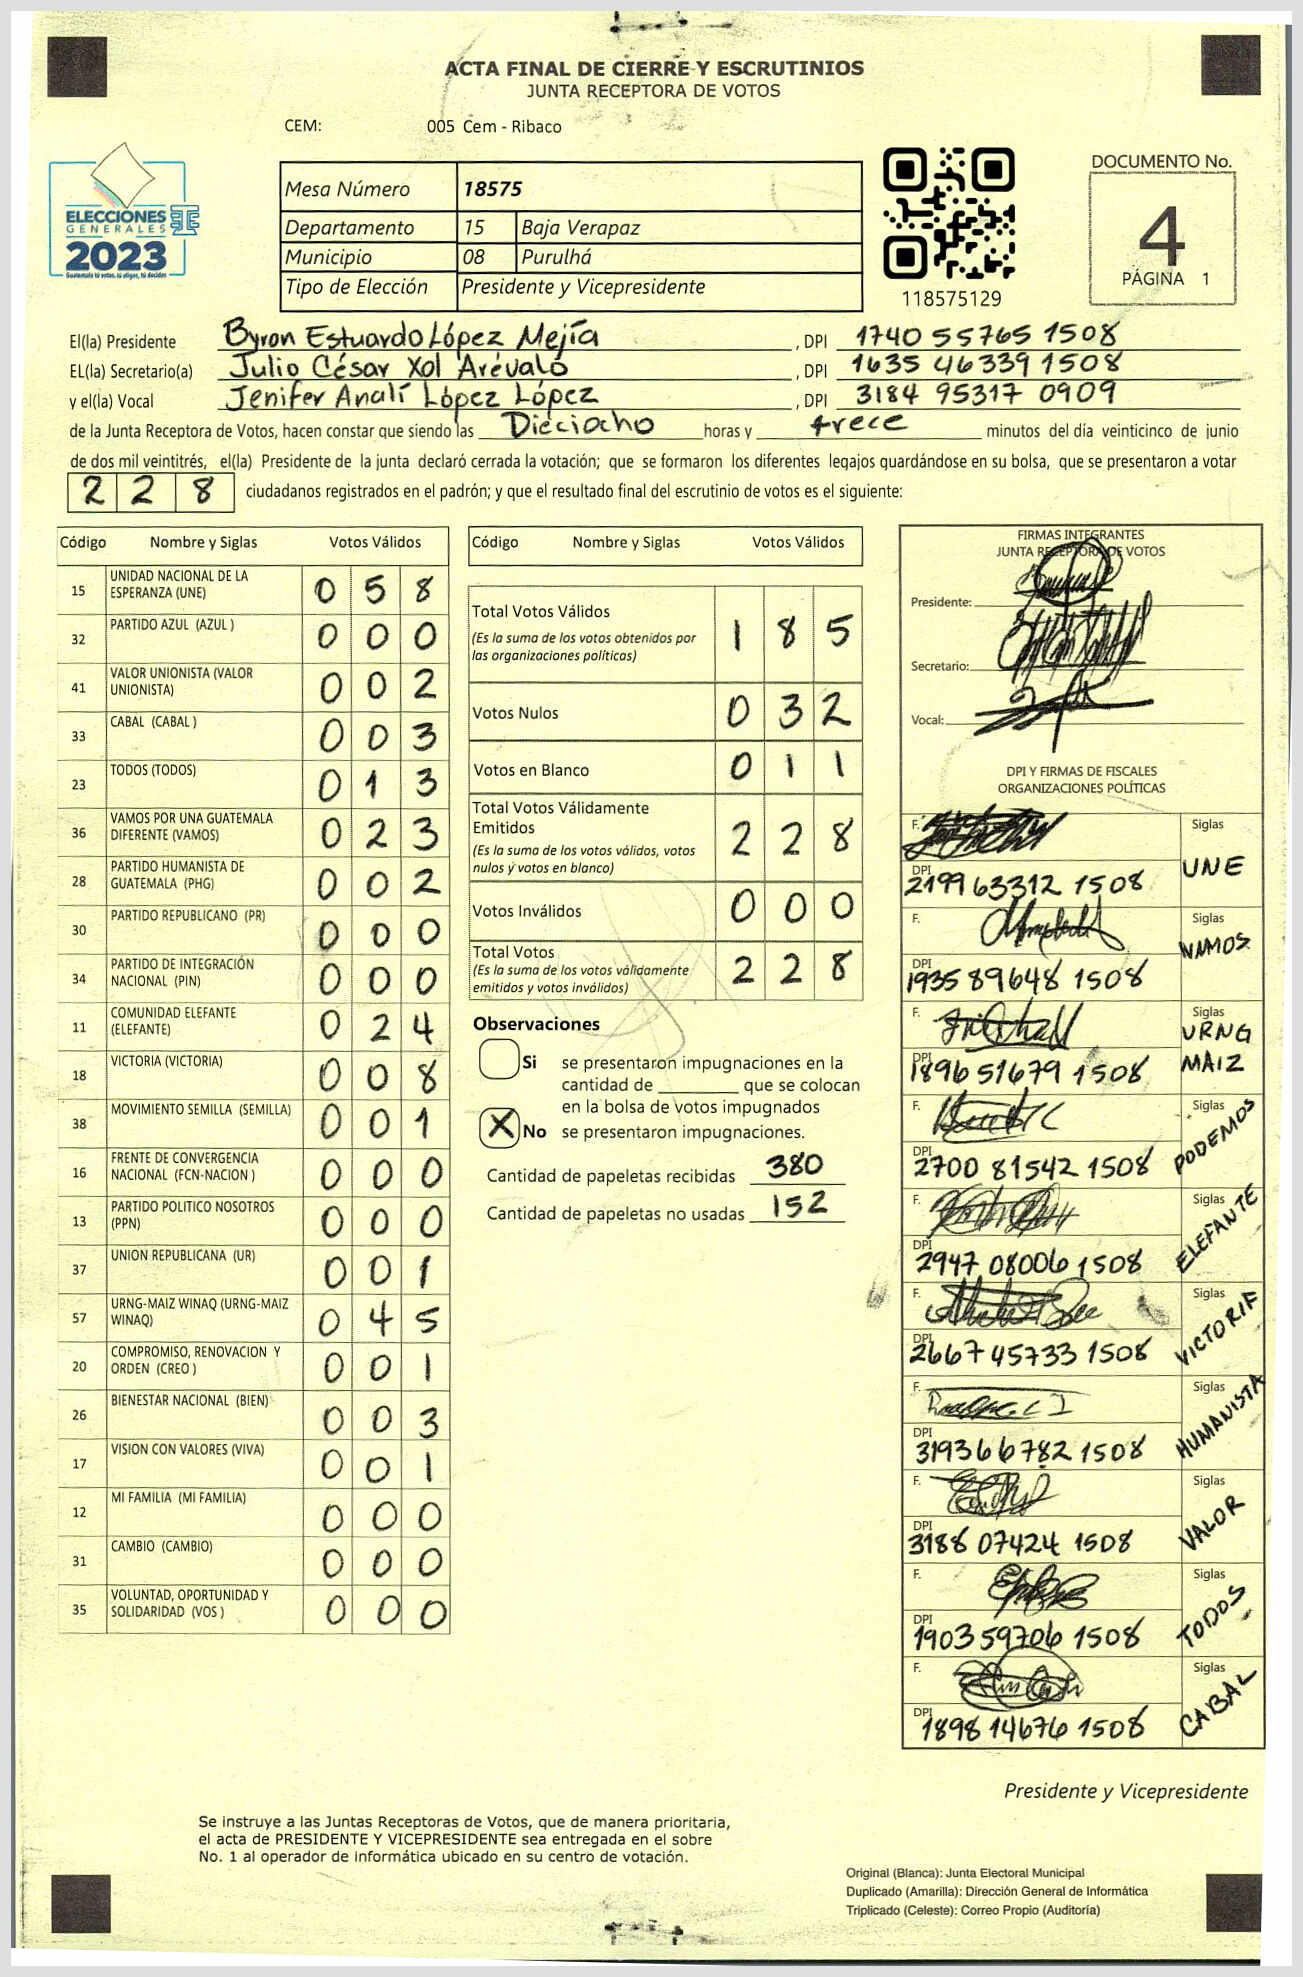 ACTA FINAL DE CIERRE Y ESCRUTINIOS
JUNTA RECEPTORA DE VOTOS
CEM: 005 Cem - Ribaco
ELECCIONES
GENERALES
2023
Guatemala tú votas, tú eliges, tú decides
Mesa Número 18575
Departamento 15 Baja Verapaz
Municipio 08 Purulhá
Tipo de Elección Presidente y Vicepresidente
118575129
DOCUMENTO No.
4
PÁGINA 1
El(la) Presidente Byron Estuardo López Mejía, DPI 1740 55765 1508
EL(la) Secretario(a) Julio César Xol Arévalo, DPI 1635 46339 1508
y el(la) Vocal Jenifer Analí López López, DPI 3184 95317 0909
de la Junta Receptora de Votos, hacen constar que siendo las Dieciocho horas y trece minutos del día veinticinco de junio
de dos mil veintitrés, el(la) Presidente de la junta declaró cerrada la votación; que se formaron los diferentes legajos guardándose en su bolsa, que se presentaron a votar
2 2 8 ciudadanos registrados en el padrón; y que el resultado final del escrutinio de votos es el siguiente:
Código Nombre y Siglas Votos Válidos
15 UNIDAD NACIONAL DE LA ESPERANZA (UNE) 0 5 8
32 PARTIDO AZUL (AZUL ) 0 0 0
41 VALOR UNIONISTA (VALOR UNIONISTA) 0 0 2
33 CABAL (CABAL ) 0 0 3
23 TODOS (TODOS) 0 1 3
36 VAMOS POR UNA GUATEMALA DIFERENTE (VAMOS) 0 2 3
28 PARTIDO HUMANISTA DE GUATEMALA (PHG) 0 0 2
30 PARTIDO REPUBLICANO (PR) 0 0 0
34 PARTIDO DE INTEGRACIÓN NACIONAL (PIN) 0 0 0
11 COMUNIDAD ELEFANTE (ELEFANTE) 0 2 4
18 VICTORIA (VICTORIA) 0 0 8
38 MOVIMIENTO SEMILLA (SEMILLA) 0 0 1
16 FRENTE DE CONVERGENCIA NACIONAL (FCN-NACION ) 0 0 0
13 PARTIDO POLITICO NOSOTROS (PPN) 0 0 0
37 UNION REPUBLICANA (UR) 0 0 1
57 URNG-MAIZ WINAQ (URNG-MAIZ WINAQ) 0 4 5
20 COMPROMISO, RENOVACION Y ORDEN (CREO ) 0 0 1
26 BIENESTAR NACIONAL (BIEN) 0 0 3
17 VISION CON VALORES (VIVA) 0 0 1
12 MI FAMILIA (MI FAMILIA) 0 0 0
31 CAMBIO (CAMBIO) 0 0 0
35 VOLUNTAD, OPORTUNIDAD Y SOLIDARIDAD (VOS ) 0 0 0
Código Nombre y Siglas Votos Válidos
Total Votos Válidos 1 8 5
(Es la suma de los votos obtenidos por
las organizaciones políticas)
Votos Nulos 0 3 2
Votos en Blanco 0 1 1
Total Votos Válidamente
Emitidos 2 2 8
(Es la suma de los votos válidos, votos
nulos y votos en blanco)
Votos Inválidos 0 0 0
Total Votos 2 2 8
(Es la suma de los votos válidamente
emitidos y votos inválidos)
Observaciones
Si se presentaron impugnaciones en la
cantidad de ________ que se colocan
en la bolsa de votos impugnados
X No se presentaron impugnaciones.
Cantidad de papeletas recibidas 380
Cantidad de papeletas no usadas 152
FIRMAS INTEGRANTES
JUNTA RECEPTORA DE VOTOS
Presidente:
Secretario:
Vocal:
DPI Y FIRMAS DE FISCALES
ORGANIZACIONES POLÍTICAS
F. Siglas
DPI 2199 63312 1508 UNE
F. Siglas
DPI 1935 89648 1508 VAMOS
F. Siglas
DPI 1896 51679 1508 URNG MAIZ
F. Siglas
DPI 2700 81542 1508 PODEMOS
F. Siglas
DPI 2947 08006 1508 ELEFANTE
F. Siglas
DPI 2667 45733 1508
F. Siglas
DPI 3193 66782 1508 HUMANISTA
F. Siglas
DPI 3188 07424 1508 VALOR
F. Siglas
DPI 1903 59706 1508 TODOS
F. Siglas
DPI 1898 14676 1508 CABAL
Presidente y Vicepresidente
Se instruye a las Juntas Receptoras de Votos, que de manera prioritaria,
el acta de PRESIDENTE Y VICEPRESIDENTE sea entregada en el sobre
No. 1 al operador de informática ubicado en su centro de votación.
Original (Blanca): Junta Electoral Municipal
Duplicado (Amarilla): Dirección General de Informática
Triplicado (Celeste): Correo Propio (Auditoría)